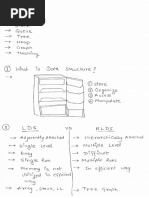 → Queue
→ Tree
→ Heap
→ Graph
→ Hashing
① What is Data Structure?
→
① Store
② Organize
③ Access
④ Manipulate
②
LDS VS NLDS
→ Single Level
→ Multiple Level
→ Easy
→ Difficult
→ Single Run
→ Multiple Run
→ Memory is not
→ In efficient way
utilized in efficient
way
→ Array, Stack, LL
→ Tree, Graph